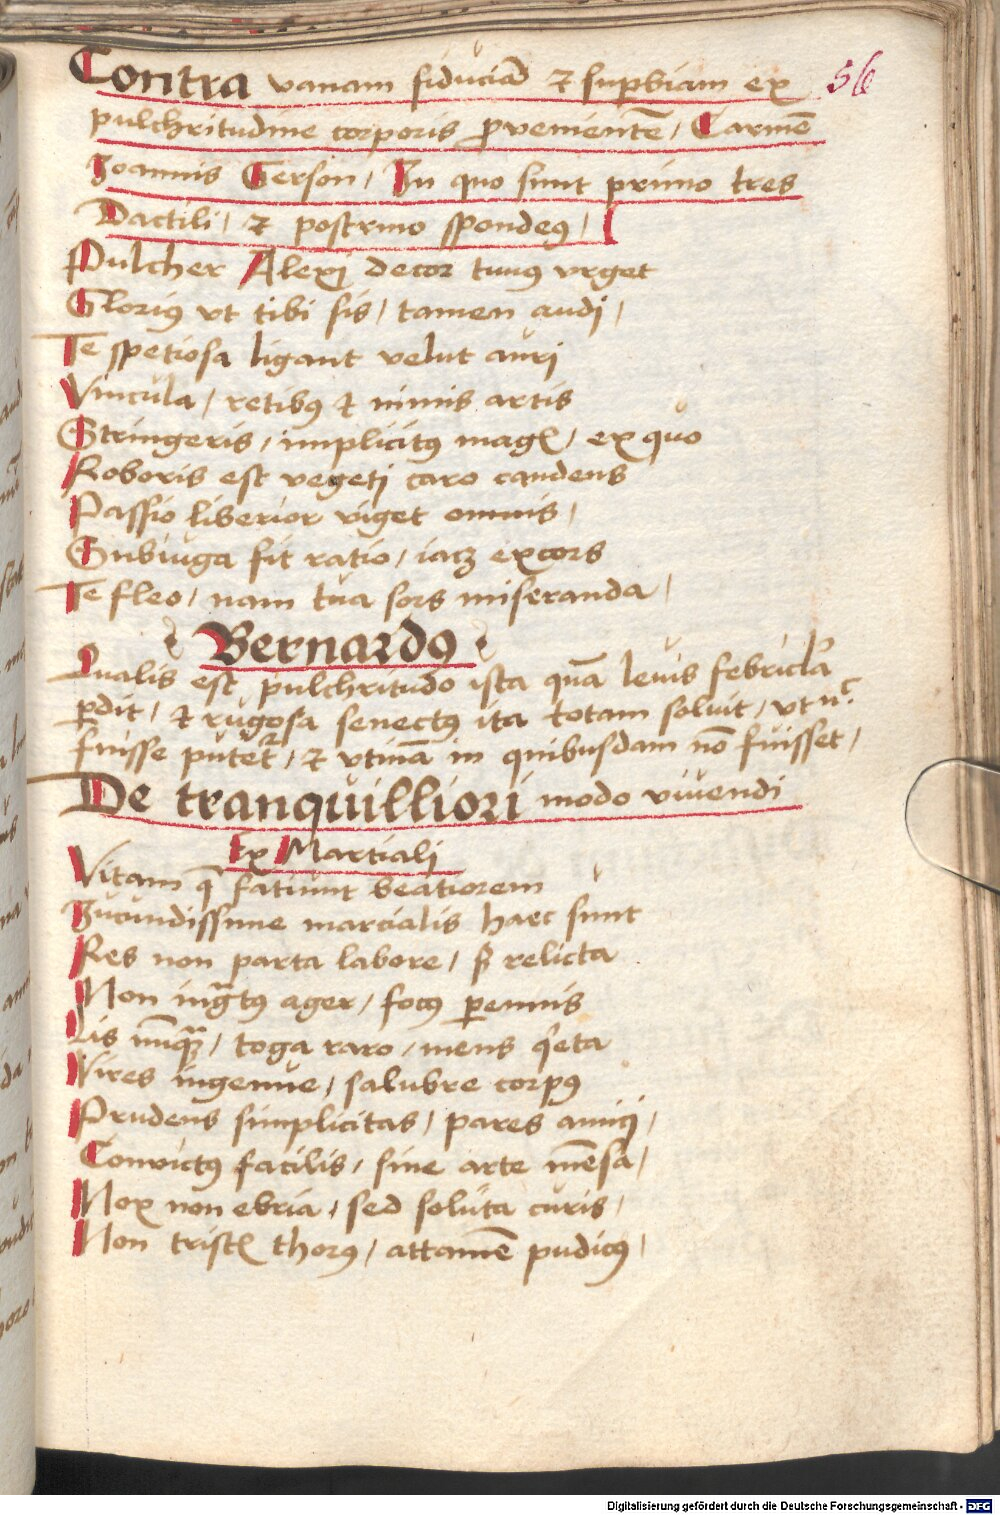 Contra vanam fiduciā ⁊ suꝑbiam ex 56
pulchritudine corporis ꝓvenientē / Carmē
Joannis Gerson / In quo sunt primo tres
Dactili / ⁊ postrmo spondeꝰ /
Pulcher Alexj decor tuus vrget
Gloriꝰ vt tibi sis / tamen audi /
Te spetiosa ligant velut auri
Vincula / retibꝰ ⁊ nimis artis
Stringeris / implicitꝰ magꝭ / ex quo
Roboris est vegetj caro candens
Passio liberior viget omnis /
Subiuga sit ratio / iacꝫ excors
Te fleo / nam tua sors miseranda /
Bernardꝰ
Qualis est pulchritudo ista quā levis febricła
ꝑdit / ⁊ rugosa senectꝰ ita totam soluit / vt nᶜ
fuisse putetᷣ / ⁊ vtinā in quibusdam nō fuisset /
De tranquilliori modo vivendi
Ex Martiali
Vitam q̄ fatiunt beatiorem
Jucundissime marcialis haec sunt
Res non parta labore / sꝫ relicta
Non ingᷓtꝰ ager / focꝰ ꝑennis
Lis nūqᷓꝫ / toga raro / mens qͥeta
Vires ingenue / salubre corpꝰ
Prudens simplicitas / pares amicj /
Convictꝰ facilis / sine arte mēsa /
Nox non ebria / sed soluta curis /
Non tristꝭ thorꝰ / attamē pudicꝰ /
Digitalisierung gefördert durch die Deutsche Forschungsgemeinschaft - DFG